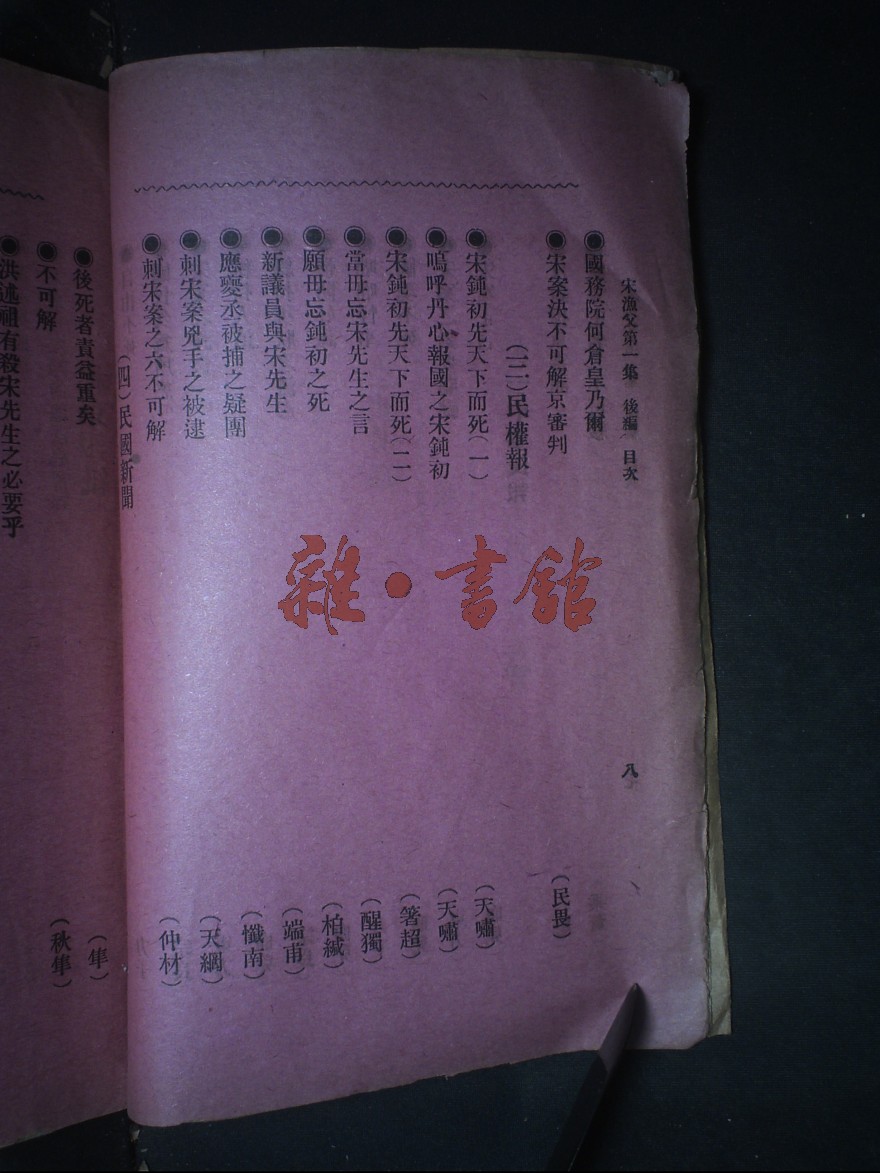 宋漁父第一集 後編 目次 八
●國務院何倉皇乃爾
●宋案決不可解京審判 (民畏)
(三)民權報
●宋鈍初先天下而死(一) (天嘯)
●嗚呼丹心報國之宋鈍初 (天嘯)
●宋鈍初先天下而死(二) (箸超)
●當毋忘宋先生之言 (醒獨)
●願毋忘鈍初之死 (柏緘)
●新議員與宋先生 (端甫)
●應夔丞被捕之疑團 (懺南)
●刺宋案兇手之被逮 (天網)
●刺宋案之六不可解 (仲材)
(四)民國新聞
●後死者責益重矣 (隼)
●不可解 (秋隼)
●洪述祖有殺宋先生之必要乎
雜·書館